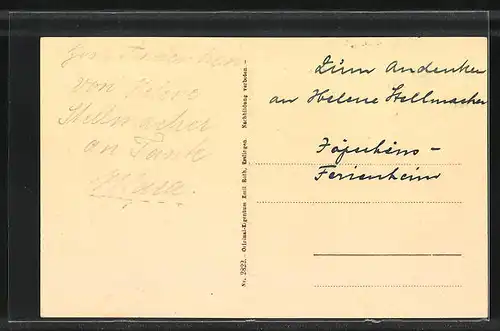 Zum Andenken
von Helene
Stellmacher
an Tante
Nr. 2822. – Original-Eigentum Emil Roth, Esslingen. Nachbildung verboten –
Zum Andenken
an Helene Stellmacher
Ferienheim